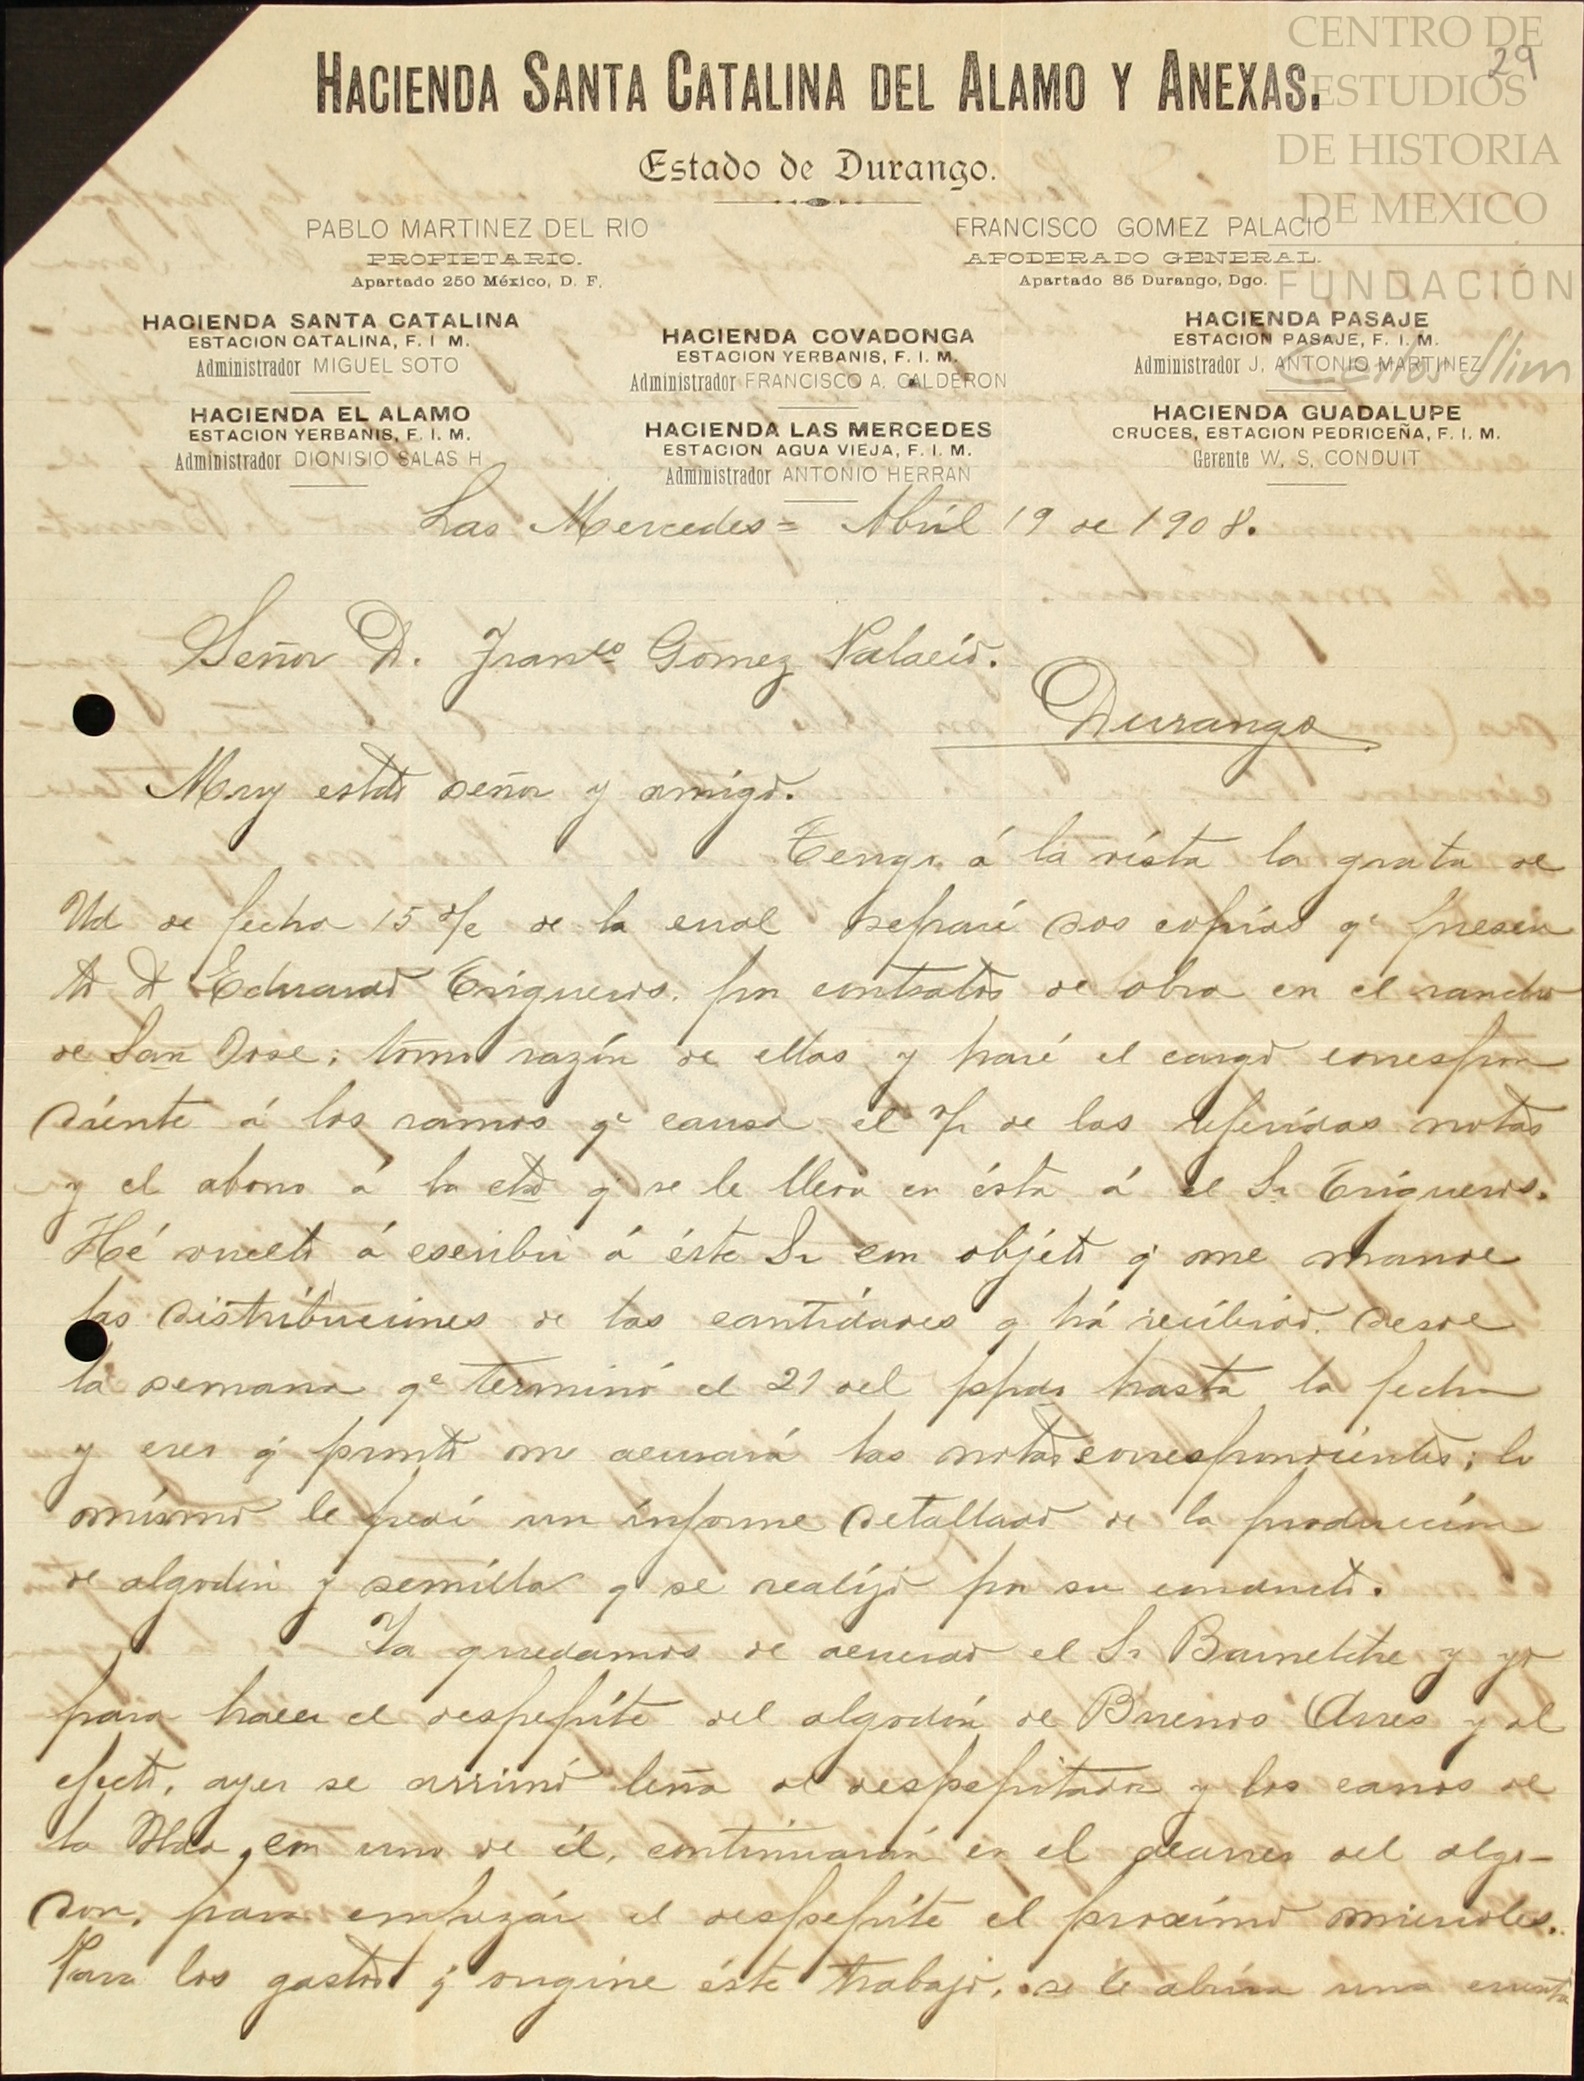 CENTRO DE
29
ESTUDIOS
DE HISTORIA
DE MEXICO
FUNDACIÓN
Carlos Slim
HACIENDA SANTA CATALINA DEL ALAMO Y ANEXAS.
Estado de Durango.
PABLO MARTINEZ DEL RIO
PROPIETARIO.
Apartado 250 México, D. F.
FRANCISCO GOMEZ PALACIO
APODERADO GENERAL.
Apartado 85 Durango, Dgo.
HACIENDA SANTA CATALINA
ESTACION CATALINA, F. I M.
Administrador MIGUEL SOTO
HACIENDA EL ALAMO
ESTACION YERBANIS, F. I. M.
Administrador DIONISIO SALAS H
HACIENDA COVADONGA
ESTACION YERBANIS, F. I. M.
Administrador FRANCISCO A. CALDERON
HACIENDA LAS MERCEDES
ESTACION AGUA VIEJA, F. I. M.
Administrador ANTONIO HERRAN
HACIENDA PASAJE
ESTACION PASAJE, F. I. M.
Administrador J. ANTONIO MARTINEZ
HACIENDA GUADALUPE
CRUCES, ESTACION PEDRICEÑA, F. I. M.
Gerente W. S. CONDUIT
Las Mercedes = Abril 19 de 1908.
Señor D. Franco Gómez Palacio.
Durango
Muy estdo señor y amigo.
Tengo á la vista la grata de
Ud de fecha 15 de la cual separé dos copias qe presen
tó D Eduardo Trigueros. por contratos de obra en el rancho
de San José; tomo razón de ellas y haré el cargo correspon
diente á los ramos qe causa el de las referidas notas
y el abono á la q se le lleva en ésta á el Sr Trigueros.
Hé vuelto á escribir á éste Sr con objéto q me mande
las distribuciones de las cantidades q há recibido desde
la semana qe terminó el 21 del ppdo hasta la fecha
y creo q pronto me las notas correspondientes; lo
mismo le pedí un informe detallado de la producción
de algodón y semilla q se realizó por su conducto.
Ya quedamos de acuerdo el Sr Barnetche y yo
para hacer el despepite del algodón de Buenos Aires y al
efecto, ayer se arrimó leña al despepitador y los carros de
la Hda, con uno de él, continuarán en el acarreo del algo-
don, para empezár el despepite el proximo miercoles.
Para los gastos q origine éste trabajo, se le abrira una cuenta